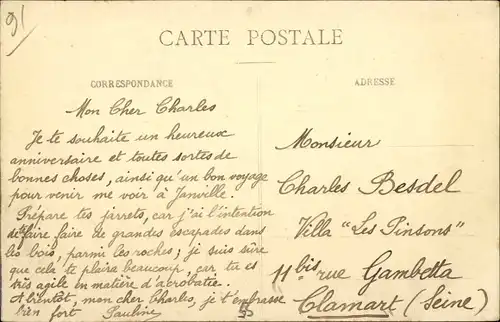 91
CARTE POSTALE
CORRESPONDANCE
Mon Cher Charles
Je te souhaite un heureux
anniversaire et toutes sortes de
bonnes choses, ainsi qu'un bon voyage
pour venir me voir à Janville.
Prépare tes jarrets, car j'ai l'intention
de te faire faire de grandes escapades dans
les bois, parmi les roches; je suis sûre
que cela te plaira beaucoup, car tu es
très agile en matière d'acrobatie.
A bientôt, mon cher Charles, je t'embrasse
bien fort Pauline
ADRESSE
Monsieur
Charles Besdel
Villa "Les Pinsons"
11 bis rue Gambetta
Clamart (Seine)